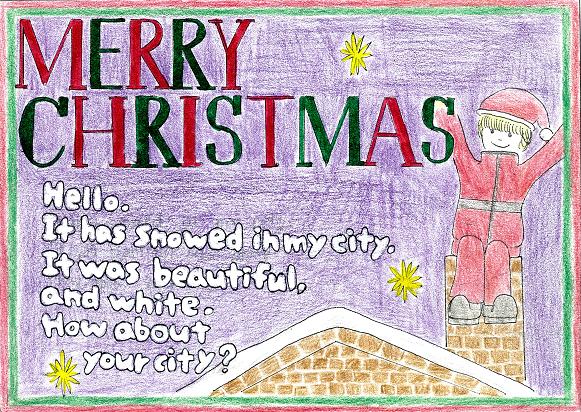 MERRY
CHRISTMAS
Hello.
It has snowed in my city.
It was beautiful,
and white.
How about
your city?